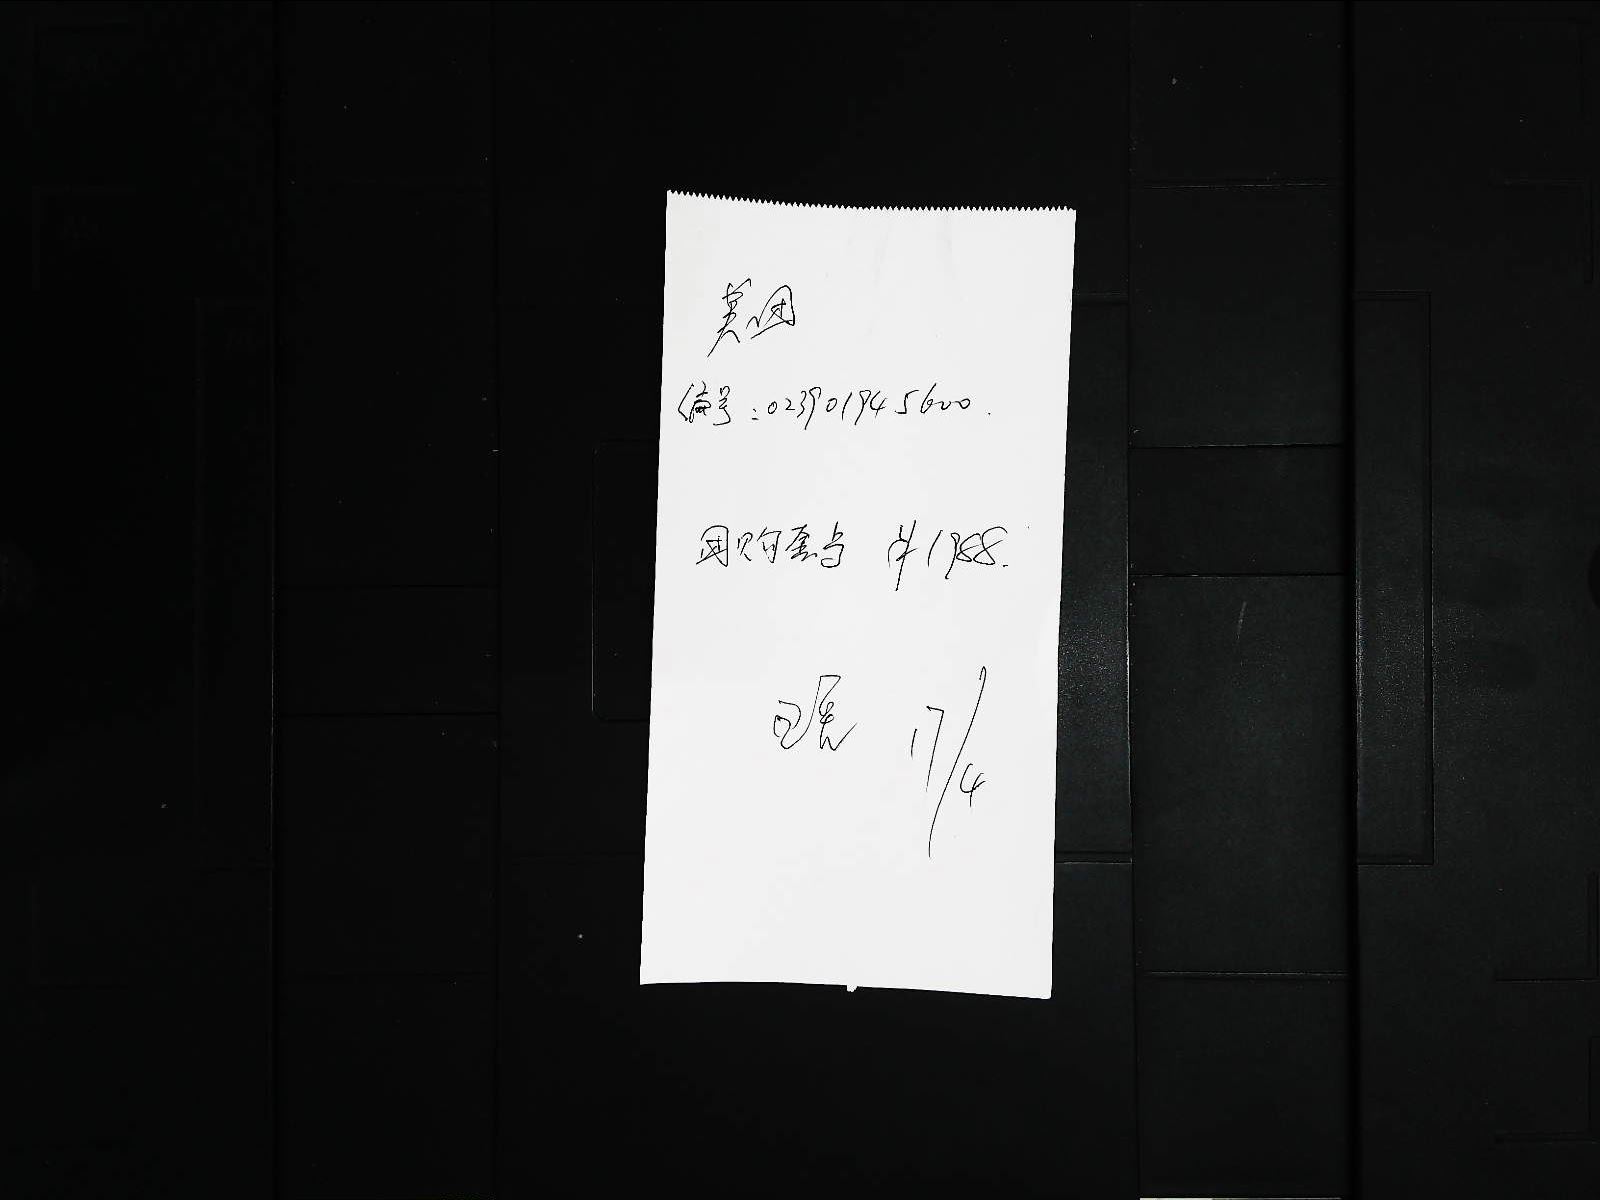 美团
编号：023901945600.
团购套与 并1988.
17/4